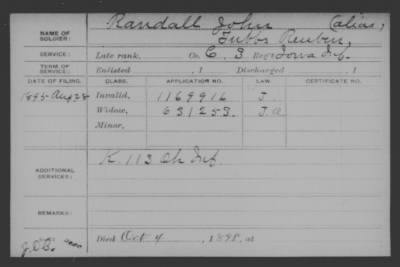 NAME OF SOLDIER: Randall John (alias,
Tubbs Reuben,
SERVICE: Late rank, Co. C, 3 Reg't Iowa Inf.
TERM OF SERVICE: Enlisted , 1 Discharged , 1
DATE OF FILING. CLASS. APPLICATION NO. LAW. CERTIFICATE NO.
1895 Aug 28 Invalid, 1169916 J
Widow, 681253. J.a
Minor,
K. 113 Oh Inf.
ADDITIONAL SERVICES:
REMARKS:
Died Oct 4 , 1898, at